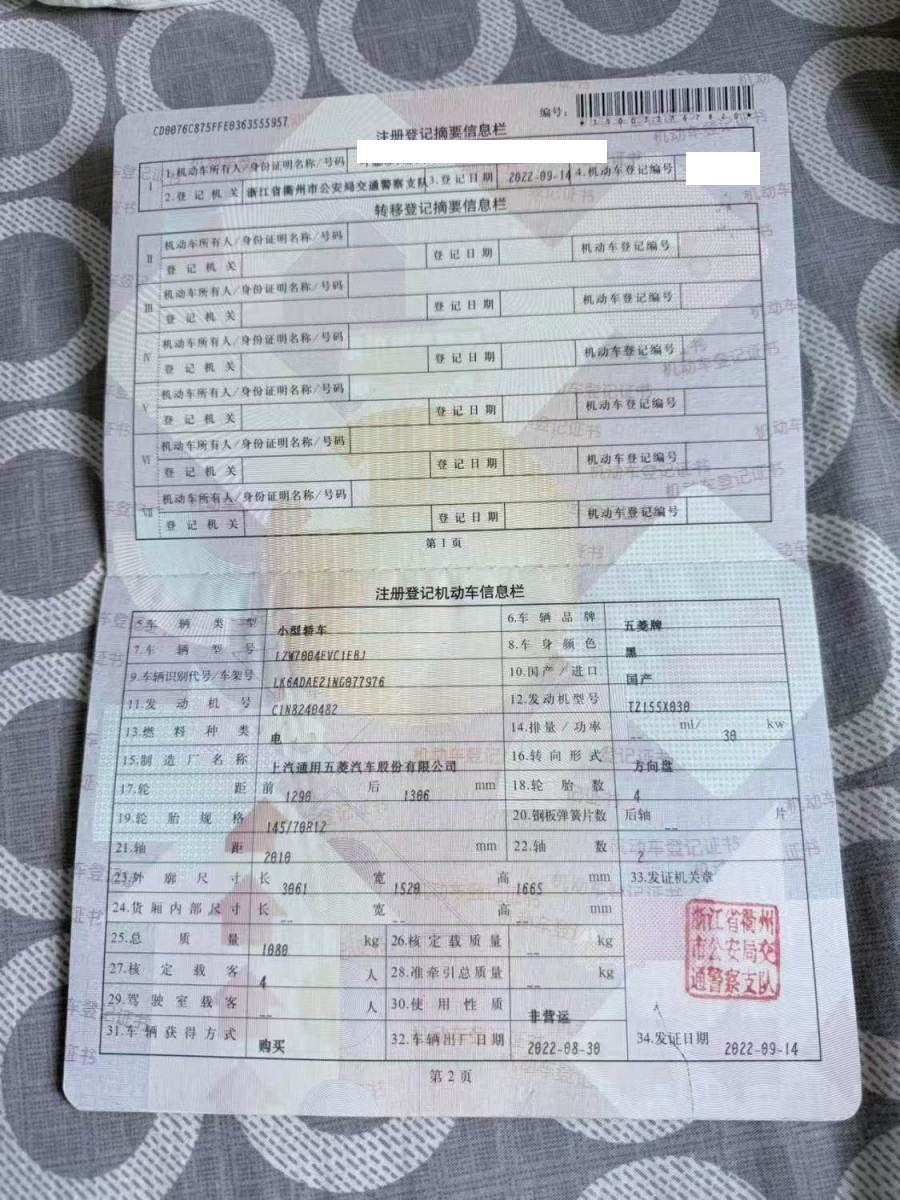 CD0076C875FFE0363555957
编号：
注册登记摘要信息栏
Ⅰ 1.机动车所有人/身份证明名称/号码
2.登记机关 浙江省衢州市公安局交通警察支队 3.登记日期 2022-09-14 4.机动车登记编号
转移登记摘要信息栏
Ⅱ 机动车所有人/身份证明名称/号码
登记机关 登记日期 机动车登记编号
Ⅲ 机动车所有人/身份证明名称/号码
登记机关 登记日期 机动车登记编号
Ⅳ 机动车所有人/身份证明名称/号码
登记机关 登记日期 机动车登记编号
Ⅴ 机动车所有人/身份证明名称/号码
登记机关 登记日期 机动车登记编号
Ⅵ 机动车所有人/身份证明名称/号码
登记机关 登记日期 机动车登记编号
Ⅶ 机动车所有人/身份证明名称/号码
登记机关 登记日期 机动车登记编号
第1页
注册登记机动车信息栏
5.车辆类型 小型轿车 6.车辆品牌 五菱牌
7.车辆型号 LZW7004EVC1EBJ 8.车身颜色 黑
9.车辆识别代号/车架号 LK6ADAE21NG077976 10.国产/进口 国产
11.发动机号 C1N8240482 12.发动机型号 TZ155X030
13.燃料种类 电 14.排量/功率 -- ml/ 30 kw
15.制造厂名称 上汽通用五菱汽车股份有限公司 16.转向形式 方向盘
17.轮距 前 1290 后 1306 mm 18.轮胎数 4
19.轮胎规格 145/70R12 20.钢板弹簧片数 后轴 -- 片
21.轴距 2010 mm 22.轴数 2
23.外廓尺寸 长 3061 宽 1520 高 1665 mm 33.发证机关章
24.货厢内部尺寸 长 -- 宽 -- 高 -- mm
浙江省衢州
市公安局交
通警察支队
25.总质量 1080 kg 26.核定载质量 -- kg
27.核定载客 4 人 28.准牵引总质量 -- kg
29.驾驶室载客 -- 人 30.使用性质 非营运
31.车辆获得方式 购买 32.车辆出厂日期 2022-08-30 34.发证日期 2022-09-14
第2页